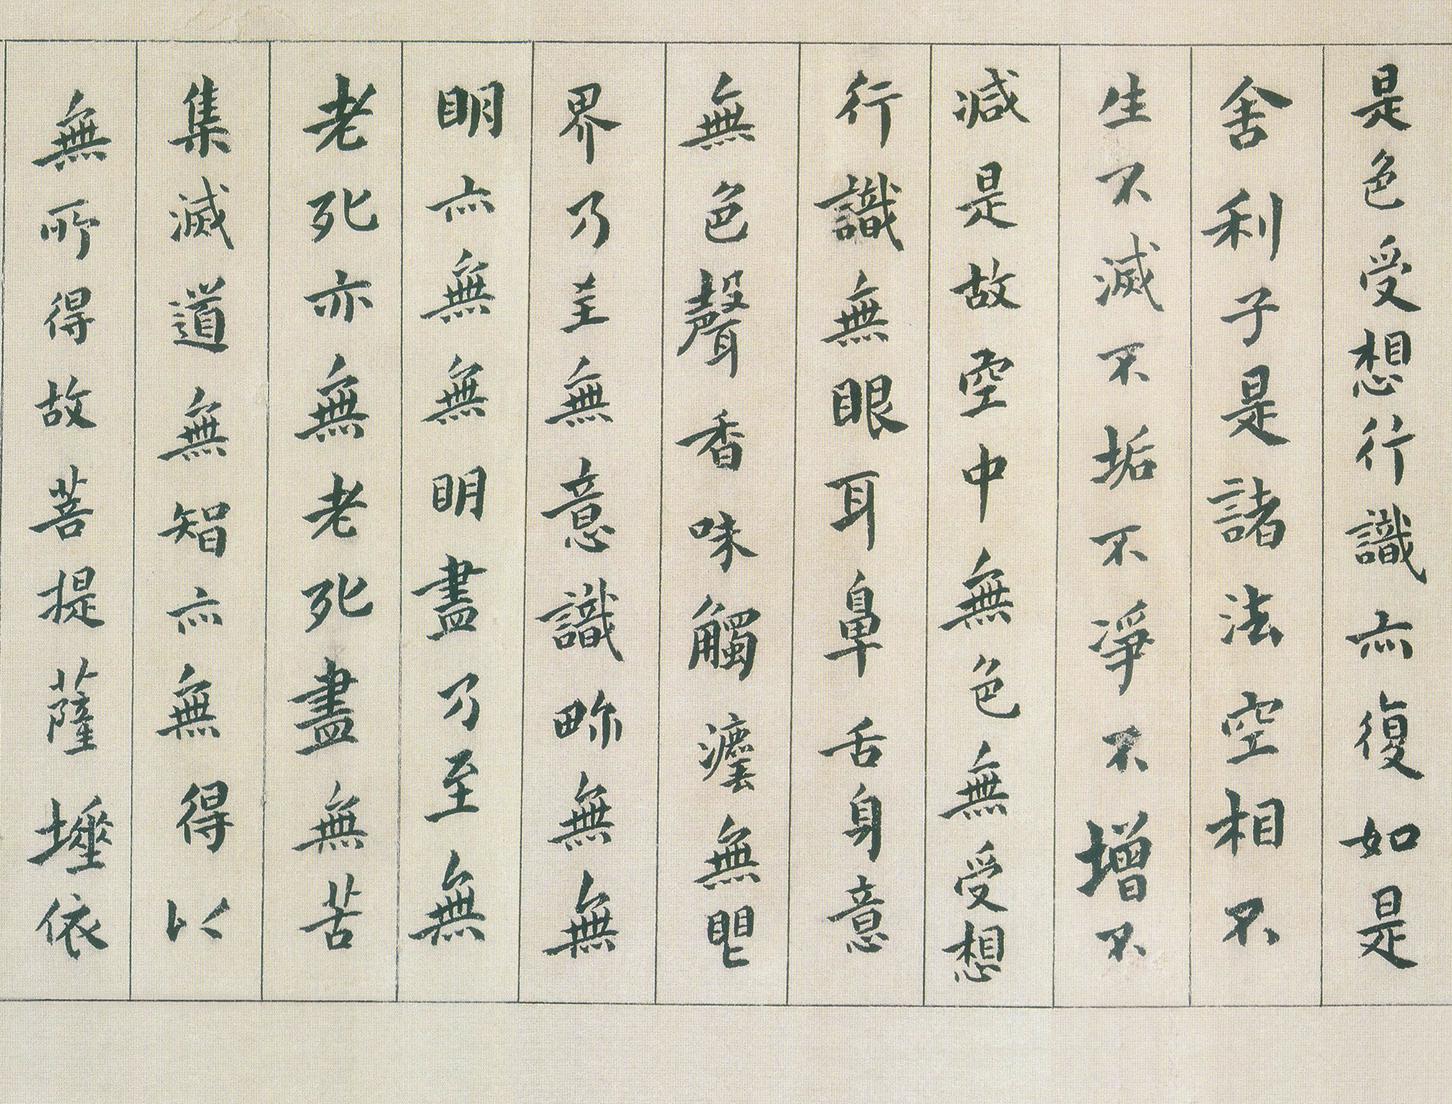 是色受想行識亦復如是
舍利子是諸法空相不
生不滅不垢不淨不增不
減是故空中無色無受想
行識無眼耳鼻舌身意
無色聲香味觸灋無眼
界乃至無意識畍無無
明亦無無明盡乃至無
老死亦無老死盡無苦
集滅道無智亦無得以
無所得故菩提薩埵依